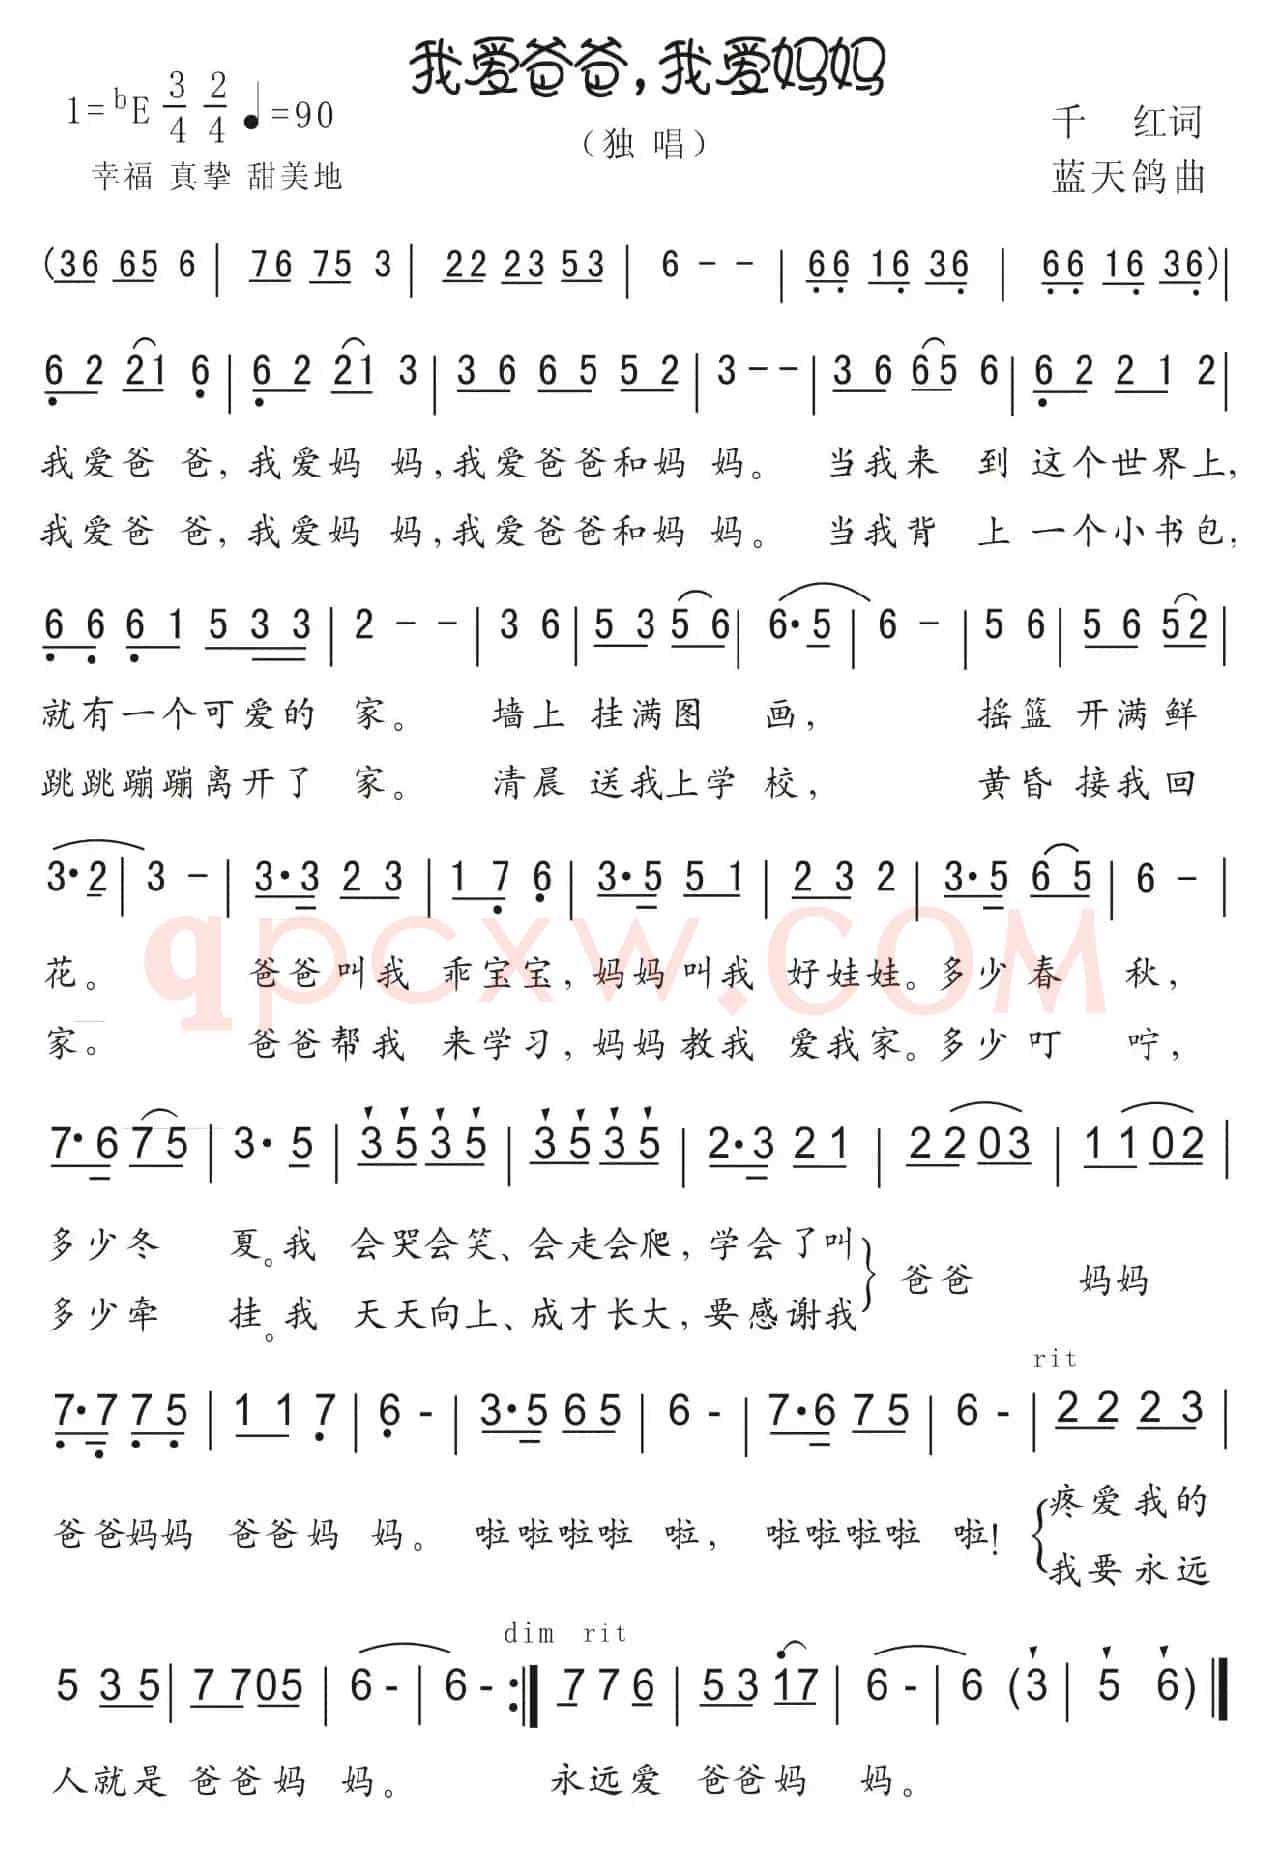 我爱爸爸,我爱妈妈
1=bE 3/4 2/4 ♩=90
（独 唱）
千 红词
幸福 真挚 甜美地
蓝天鸽曲
(36 65 6 | 76 75 3 | 22 23 53 | 6 - - | 66 16 36 | 66 16 36)|
6 2 21 6 | 6 2 21 3 | 3 6 6 5 5 2 | 3 - - | 3 6 65 6 | 6 2 2 1 2 |
我爱爸 爸, 我爱妈 妈, 我爱爸爸和妈 妈。 当我来 到 这个世界上,
我爱爸 爸, 我爱妈 妈, 我爱爸爸和妈 妈。 当我背 上 一个小书包,
6 6 6 1 5 3 3 | 2 - - | 3 6 | 5 3 5 6 | 6· 5 | 6 - | 5 6 | 5 6 52 |
就有一个可爱的 家。 墙上 挂满图 画, 摇篮 开满鲜
跳跳蹦蹦离开了 家。 清晨 送我上学 校, 黄昏 接我回
3· 2 | 3 - | 3· 3 2 3 | 1 7 6 | 3· 5 5 1 | 2 3 2 | 3· 5 6 5 | 6 - |
qpcxw.COM
花。 爸爸叫我 乖宝宝, 妈妈叫我 好娃娃。多少春 秋,
家。 爸爸帮我 来学习, 妈妈教我 爱我家。多少叮 咛,
7· 6 7 5 | 3· 5 | 3 5 3 5 | 3 5 3 5 | 2· 3 2 1 | 2 2 0 3 | 1 1 0 2 |
多少冬 夏。我 会哭会笑、会走会爬, 学会了叫 } 爸爸 妈妈
多少牵 挂。我 天天向上、成才长大, 要感谢我
rit
7· 7 7 5 | 1 1 7 | 6 - | 3· 5 6 5 | 6 - | 7· 6 7 5 | 6 - | 2 2 2 3 |
爸爸妈妈 爸爸妈 妈。 啦啦啦啦 啦, 啦啦啦啦 啦! { 疼爱我的
我要永远
dim rit
5 3 5 | 7 7 0 5 | 6 - | 6 - :| 7 7 6 | 5 3 1 7 | 6 - | 6 (3 | 5 6) ‖
人就是 爸爸妈 妈。 永远爱 爸爸妈 妈。